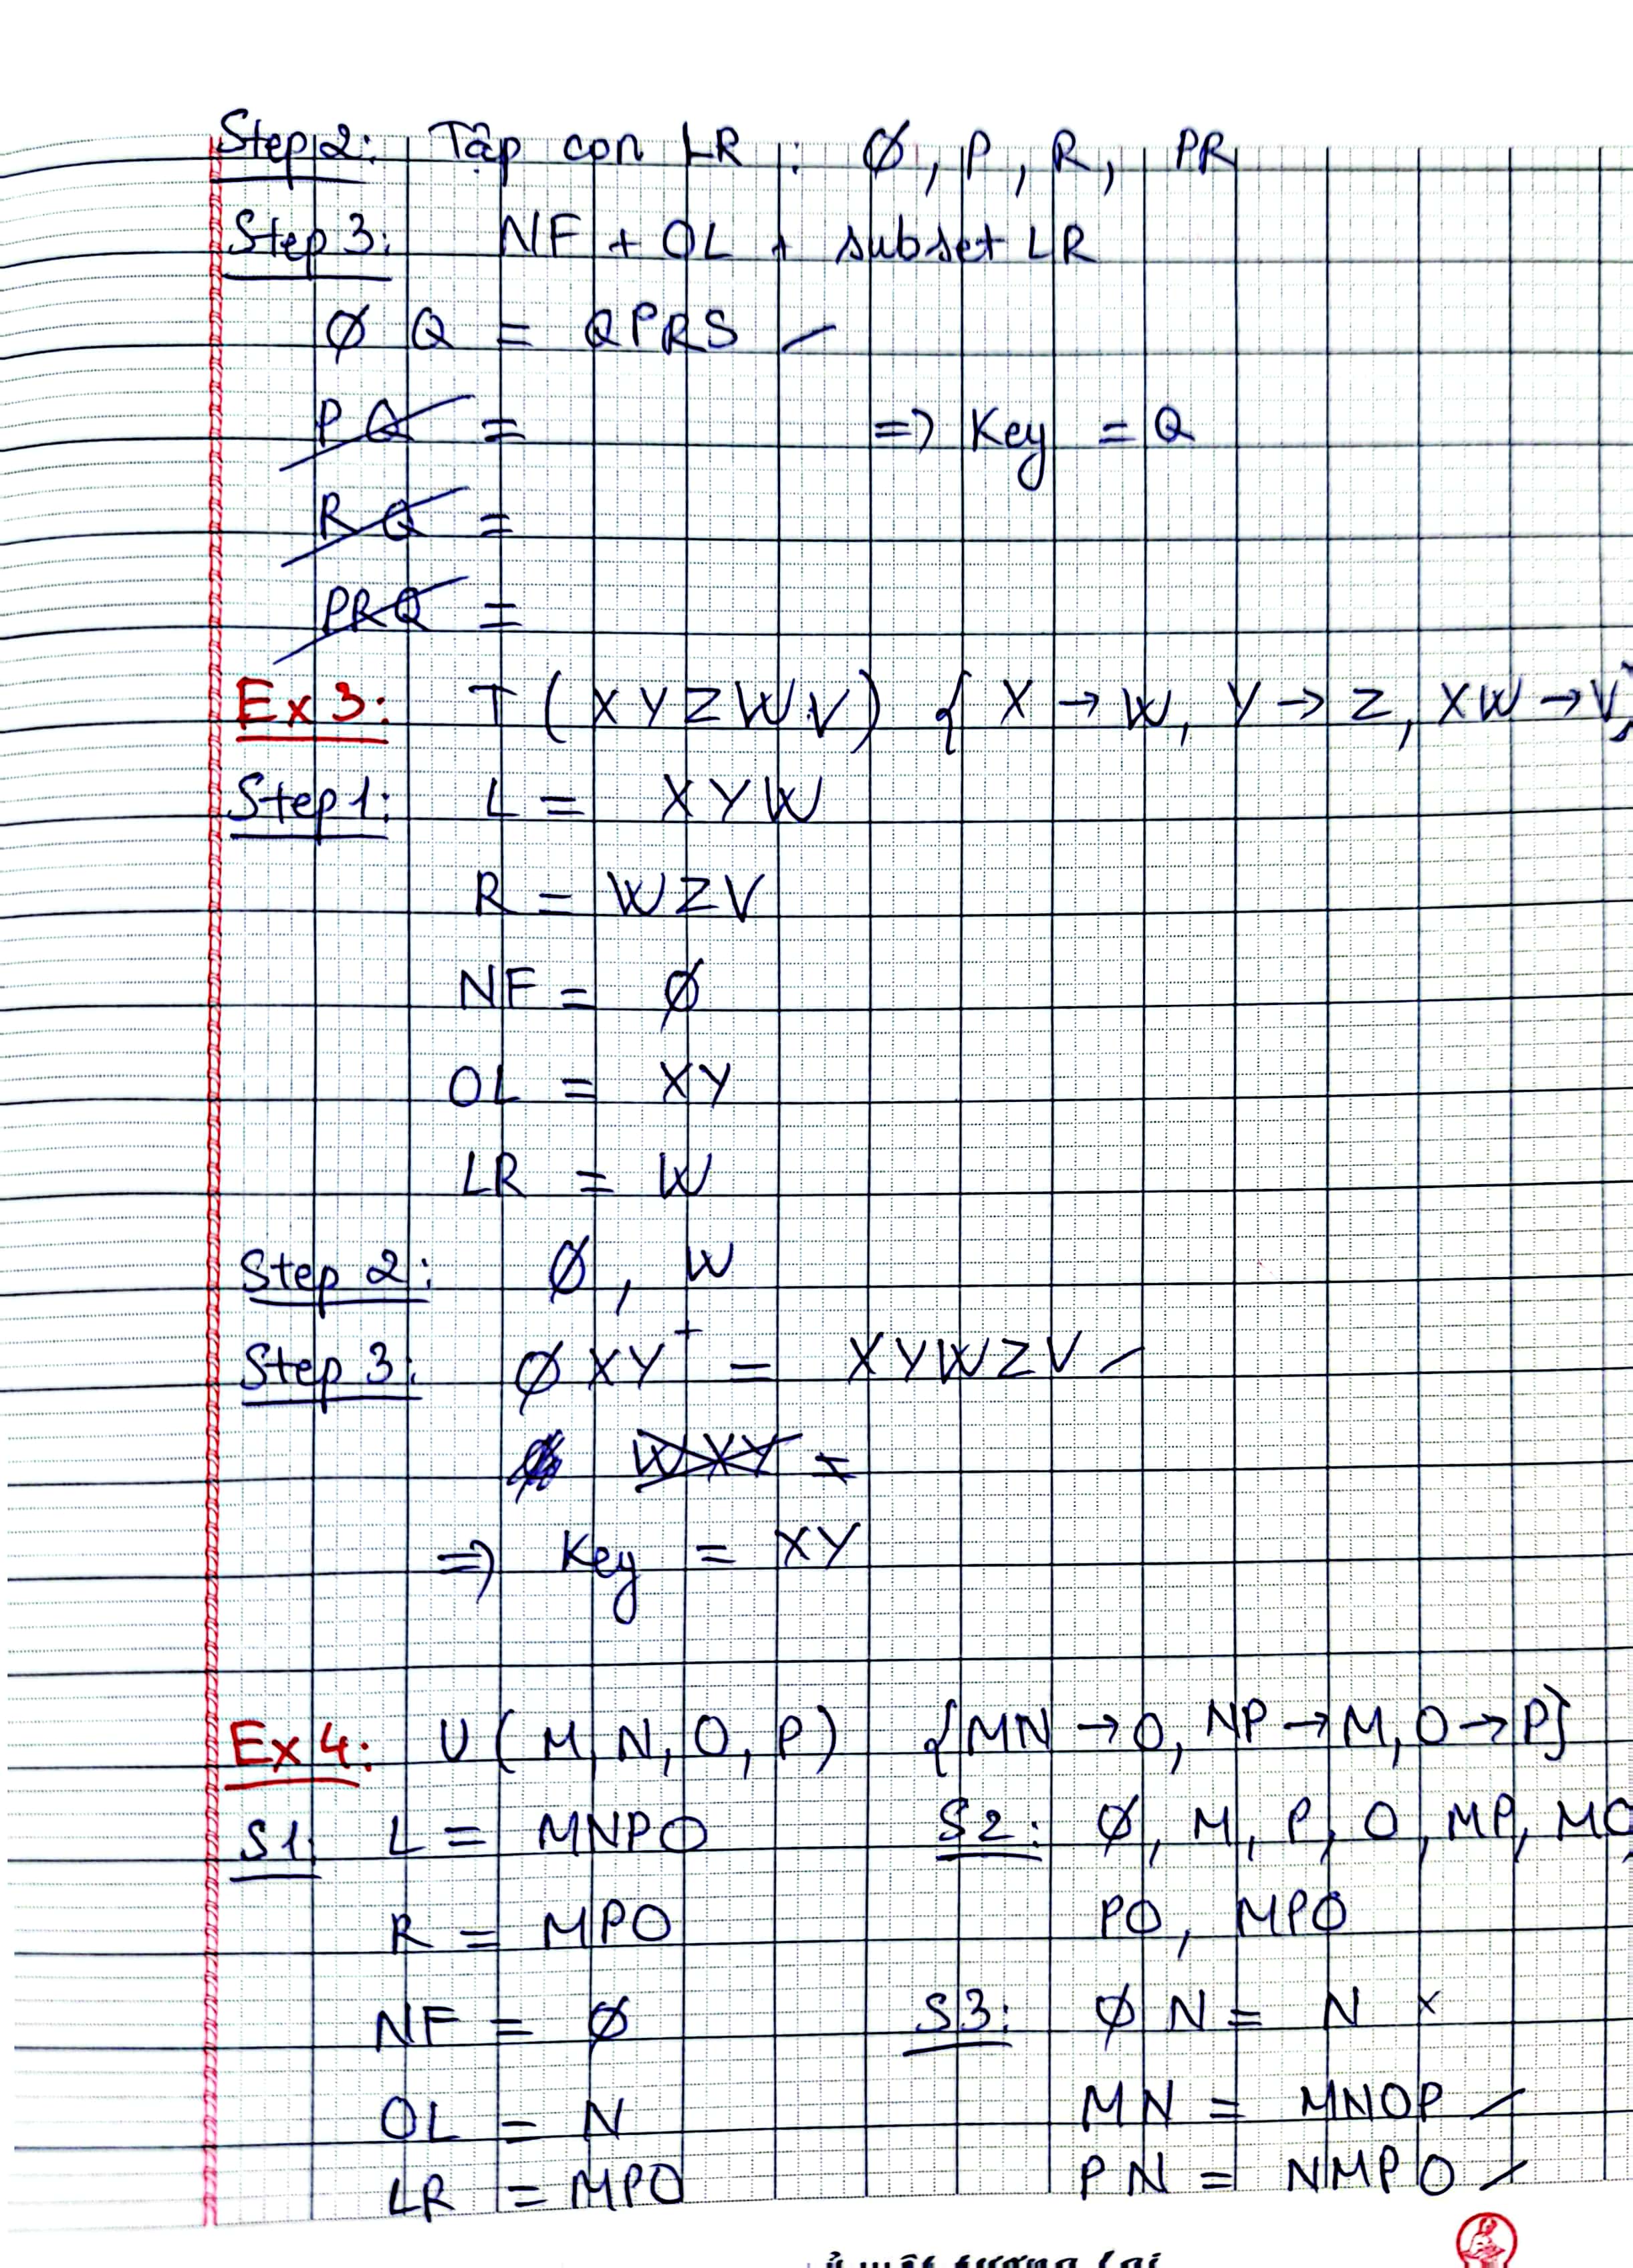 Step 2: Tập con LR : Ø, P, R, PR
Step 3: NF + OL + subset LR
Ø Q = QPRS
PQ =
=> Key = Q
RQ =
PRQ =
Ex 3: T ( X Y Z W V ) { X → W, Y → Z, XW → V}
Step 1: L = XYW
R = WZV
NF = Ø
OL = XY
LR = W
Step 2: Ø, W
Step 3: Ø XY⁺ = XYWZV
WXY =
=> Key = XY
Ex 4: U ( M, N, O, P ) {MN → O, NP → M, O → P}
S1: L = MNPO
R = MPO
NF = Ø
OL = N
LR = MPO
S2: Ø, M, P, O, MP, MO,
PO, MPO
S3: Ø N = N ×
MN = MNOP
PN = NMPO